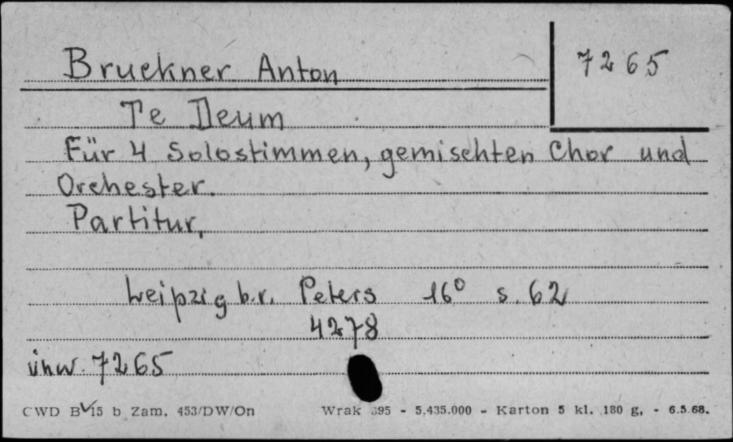 Bruckner Anton
7265
Te Deum
Für 4 Solostimmen, gemischten Chor und
Orchester.
Partitur.
Leipzig b.r. Peters 16° s. 62
4278
inw. 7265
CWD B 15 b Zam. 453/DW/On Wrak 395 - 5.435.000 - Karton 5 kl. 180 g. - 6.5.68.